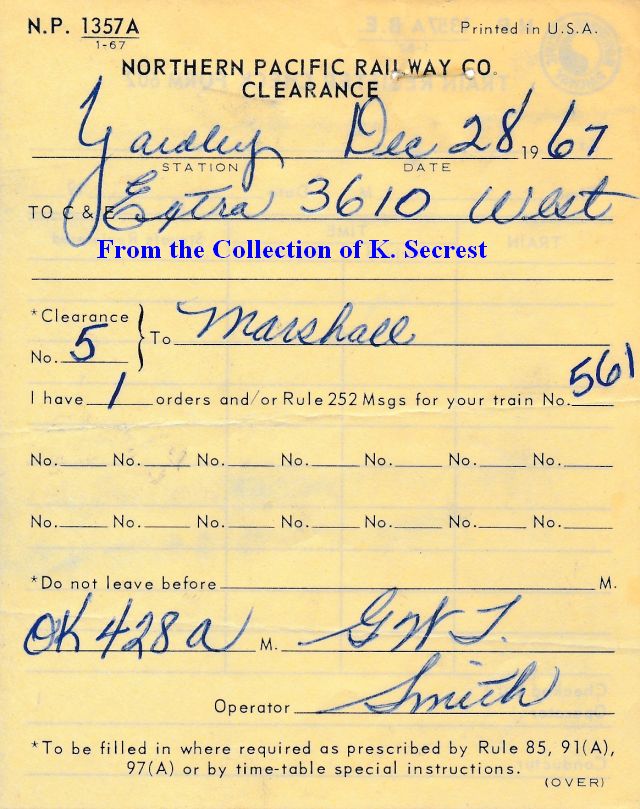 N.P. 1357A Printed in U.S.A.
1-67
NORTHERN PACIFIC RAILWAY CO.
CLEARANCE
Yardley Dec 28 1967
STATION DATE
TO C & E Extra 3610 West
From the Collection of K. Secrest
*Clearance
No. 5 } To Marshall
I have 1 orders and/or Rule 252 Msgs for your train No. 561
No. No. No. No. No. No. No.
No. No. No. No. No. No. No.
*Do not leave before M.
OK 428 a M. GWT.
Operator Smith
*To be filled in where required as prescribed by Rule 85, 91(A),
97(A) or by time-table special instructions.
(OVER)